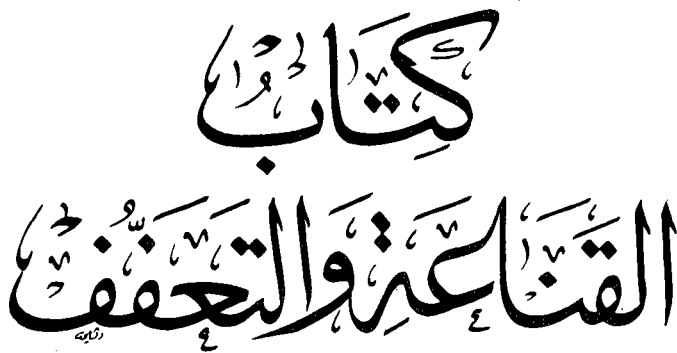 كِتَابُ
القَنَاعَةِ وَالتَعَفّفُ